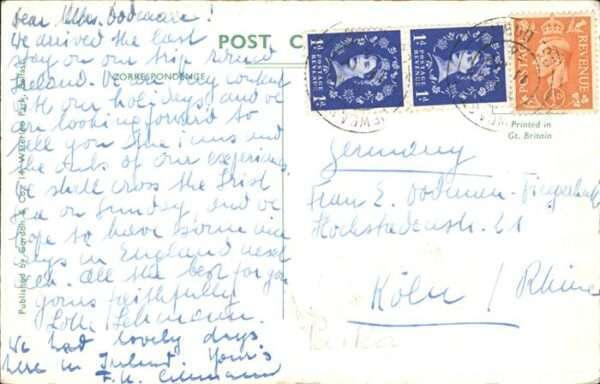 Dear Mrs. Dodemann!
We arrived the last
stay on our trip round
Ireland. We are very content
with our holidays and we
are looking forward to
tell you the ins and
the outs of our experience.
We shall cross the Irish
Sea on Sunday, and we
hope to have some nice
days in England next
week. All the best for you
yours faithfully
Lotte Lehmann
We had lovely days
here in Ireland. Yours
F. K. Lehmann
Published by Gordon & Co., Waterloo Park, Belfast
POST C
CORRESPONDENCE
1D POSTAGE REVENUE 1D
1D POSTAGE REVENUE 1D
POSTAGE REVENUE
Printed in
Gt. Britain
Germany
Frau E. Dodemann
Hochstadenstr. 21
Köln / Rhine